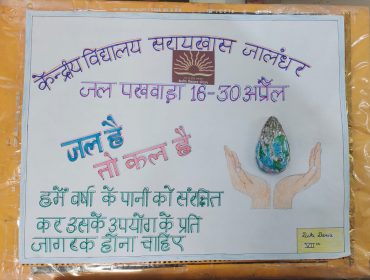 केन्द्रीय विद्यालय सरायखास जालंधर
जल पखवाड़ा 16-30 अप्रैल
जल है
तो कल है
हमें वर्षा के पानी को संरक्षित
कर उसके उपयोग के प्रति
जागरूक होना चाहिए
VII